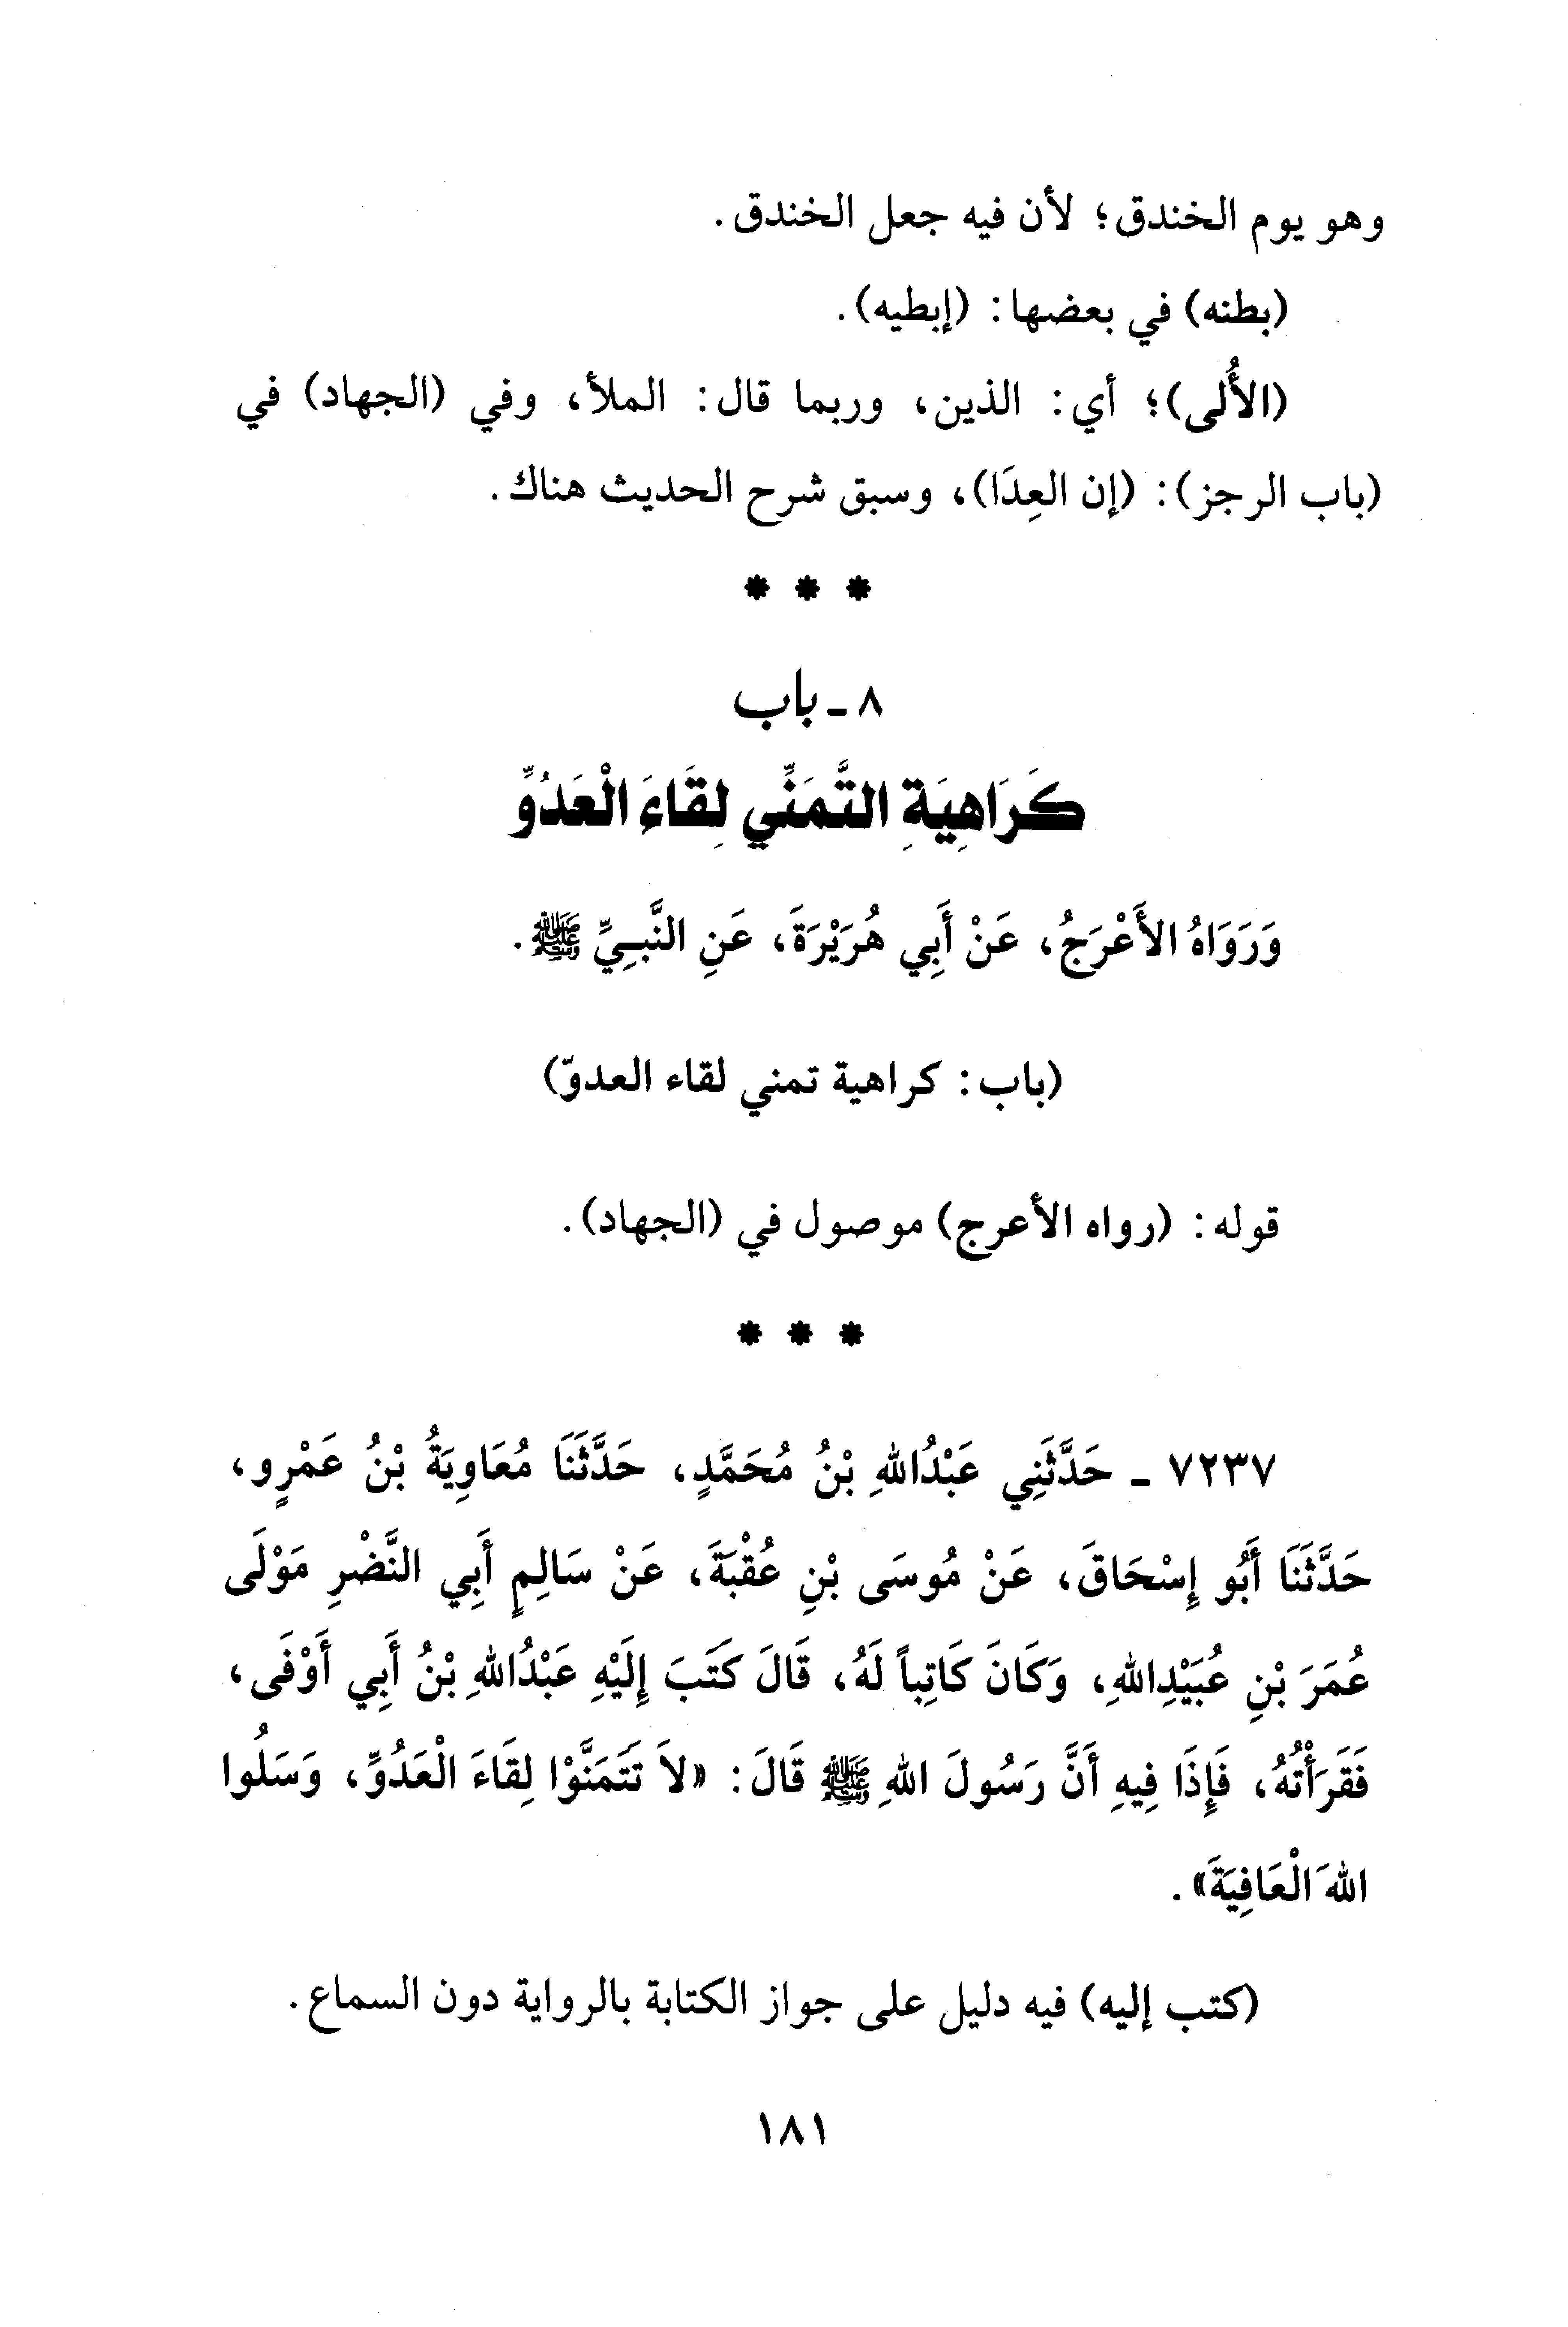 وهو يوم الخندق؛ لأن فيه جعل الخندق.
(بطنه) في بعضها: (إبطيه).
(الأُلى)؛ أي: الذين، وربما قال: الملأ، وفي (الجهاد) في
(باب الرجز): (إن العِدَا)، وسبق شرح الحديث هناك.
* * *
٨ ـ باب
كَرَاهِيَةِ التَّمَنِّي لِقَاءَ الْعَدُوِّ
وَرَوَاهُ الأَعْرَجُ، عَنْ أَبِي هُرَيْرَةَ، عَنِ النَّبِيِّ ﷺ.
(باب: كراهية تمني لقاء العدوّ)
قوله: (رواه الأعرج) موصول في (الجهاد).
* * *
٧٢٣٧ ـ حَدَّثَنِي عَبْدُاللهِ بْنُ مُحَمَّدٍ، حَدَّثَنَا مُعَاوِيَةُ بْنُ عَمْرٍو،
حَدَّثَنَا أَبُو إِسْحَاقَ، عَنْ مُوسَى بْنِ عُقْبَةَ، عَنْ سَالِمٍ أَبِي النَّضْرِ مَوْلَى
عُمَرَ بْنِ عُبَيْدِاللهِ، وَكَانَ كَاتِباً لَهُ، قَالَ كَتَبَ إِلَيْهِ عَبْدُاللهِ بْنُ أَبِي أَوْفَى،
فَقَرَأْتُهُ، فَإِذَا فِيهِ أَنَّ رَسُولَ اللهِ ﷺ قَالَ: «لاَ تَتَمَنَّوْا لِقَاءَ الْعَدُوِّ، وَسَلُوا
اللهَ الْعَافِيَةَ».
(كتب إليه) فيه دليل على جواز الكتابة بالرواية دون السماع.
١٨١